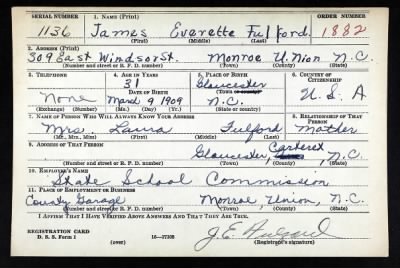 SERIAL NUMBER 1. NAME (Print) ORDER NUMBER
1136 James Everette Fulford. 1882
(First) (Middle) (Last)
2. ADDRESS (Print)
309 East Windsor St. Monroe Union N.C.
(Number and street or R. F. D. number) (Town) (County) (State)
3. TELEPHONE 4. AGE IN YEARS 5. PLACE OF BIRTH 6. COUNTRY OF CITIZENSHIP
31 Gloucester
None DATE OF BIRTH (Town or county) U.S.A
March 9 1909 N.C.
(Exchange) (Number) (Mo.) (Day) (Yr.) (State or country)
7. NAME OF PERSON WHO WILL ALWAYS KNOW YOUR ADDRESS 8. RELATIONSHIP OF THAT PERSON
Mrs. Laura Fulford Mother
(Mr., Mrs., Miss) (First) (Middle) (Last)
9. ADDRESS OF THAT PERSON
Gloucester, Carteret, N.C.
(Number and street or R. F. D. number) (Town) (County) (State)
10. EMPLOYER'S NAME
State School Commission
11. PLACE OF EMPLOYMENT OR BUSINESS
County Garage Monroe Union, N.C.
(Number and street or R. F. D. number) (Town) (County) (State)
I AFFIRM THAT I HAVE VERIFIED ABOVE ANSWERS AND THAT THEY ARE TRUE.
REGISTRATION CARD J.E. Fulford
D. S. S. Form 1 (over) 16—17105 (Registrant's signature)